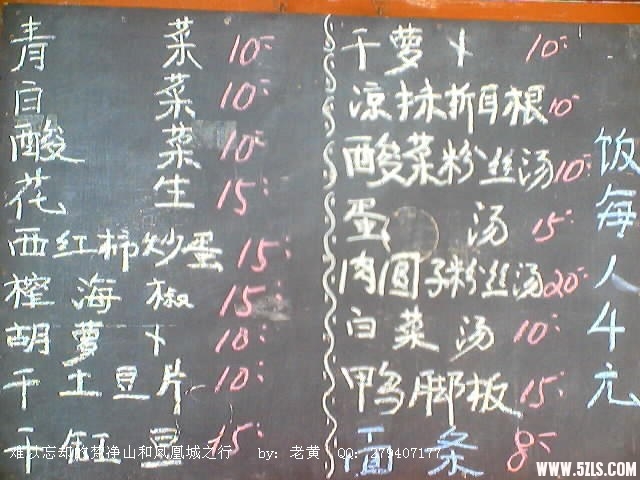 青菜 10
白菜 10
酸菜 10
花生 15
西红柿炒蛋 15
榨海椒 15
胡萝卜 10
干土豆片 10
干豇豆 15
干萝卜 10
凉抹折耳根 10
酸菜粉丝汤 10
蛋汤 15
肉圆子粉丝汤 20
白菜汤 10
鸭脚板 15
面条 8
饭每人4元
难以忘却的梵净山和凤凰城之行 by: 老黄 QQ: 279407177
WWW.5ZLS.COM